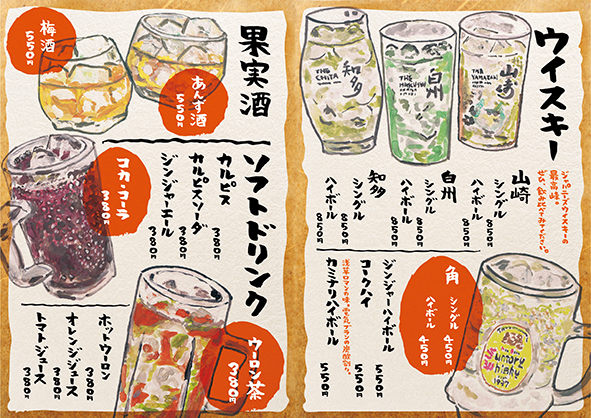 ウイスキー
知多
THE CHITA
白州
THE HAKUSHU
山崎
THE YAMAZAKI
ジャパニーズウイスキーの
最高峰。
ぜひ、飲み比べてみてください。
山崎
シングル 850円
ハイボール 850円
白州
シングル 850円
ハイボール 850円
知多
シングル 850円
ハイボール 850円
角
シングル 450円
ハイボール 450円
ジンジャーハイボール 550円
コークハイ 550円
カミナリハイボール 550円
Suntory
Whisky
1937
果実酒
梅酒
550円
あんず酒
550円
ソフトドリンク
カルピス 380円
カルピスソーダ 380円
ジンジャーエール 380円
コカ・コーラ
380円
ウーロン茶
380円
ホットウーロン 380円
オレンジジュース 380円
トマトジュース 380円